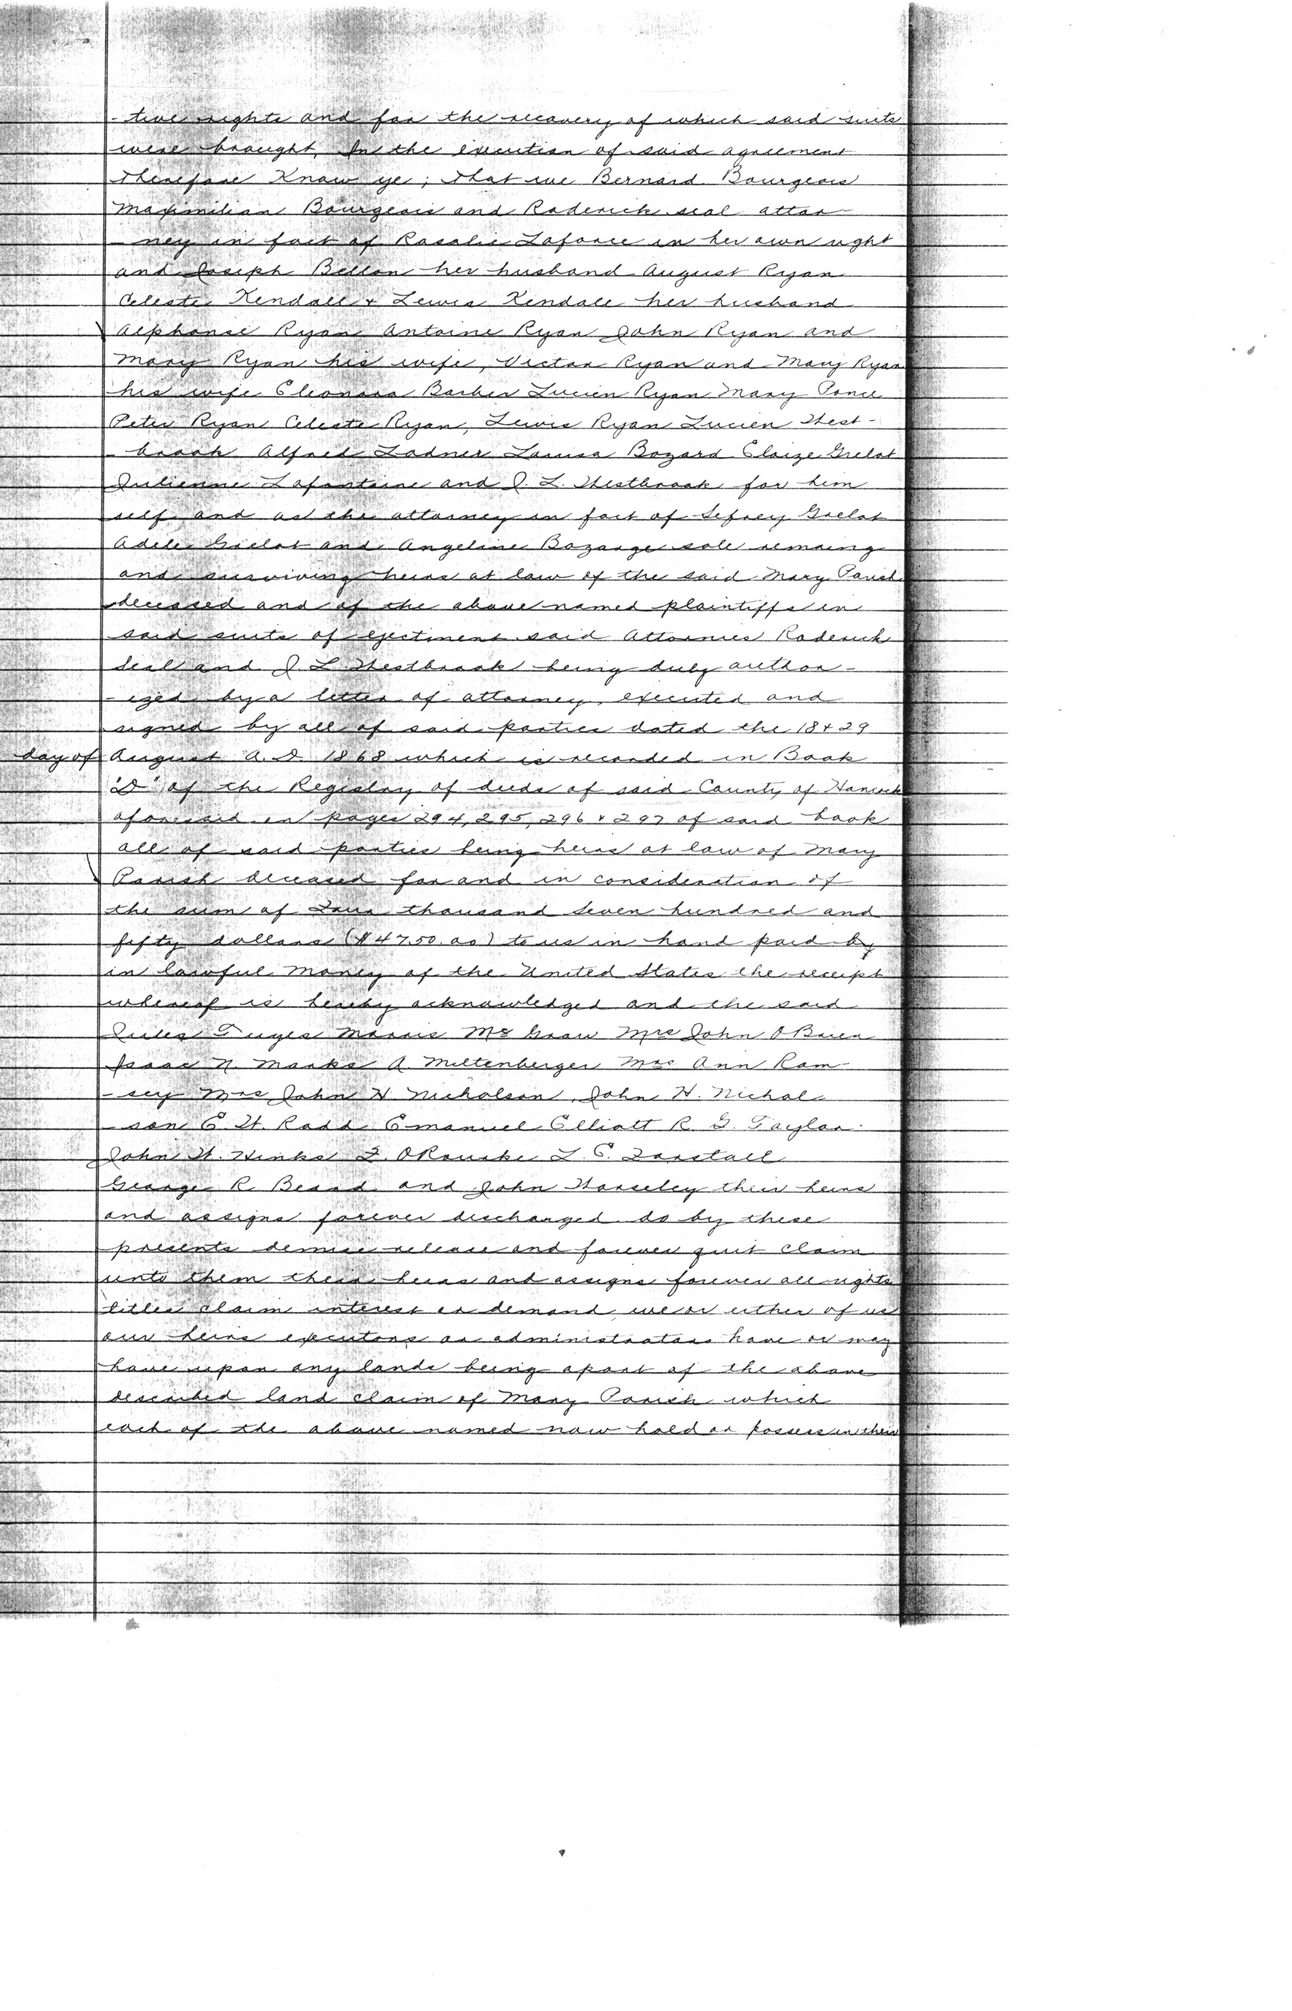 -tive rights and for the recovery of which said suits
were brought, In the execution of said agreement
therefore Know ye; that we Bernard Bourgeois
Maximilian Bourgeois and Roderick seal attor
-ney in fact of Rosalie Laforce in her own right
and Joseph Bellon her husband August Ryan
Celeste Kendall & Lewis Kendall her husband
Alphonse Ryan Antoine Ryan John Ryan and
Mary Ryan his wife, Victor Ryan and Mary Ryan
his wife Eleonora Barber Lucien Ryan Mary Ponce
Peter Ryan Celeste Ryan, Lewis Ryan Lucien West-
-brook Alfred Ladner Louisa Bozard Eloize Grelot
Julienne Lafontaine and J. L. Westbrook for him
self and as the attorney in fact of Sefrey Grelot
Adele Grelot and Angeline Bozarge sole remaing
and surviving heirs at law of the said Mary Parish
deceased and of the above named plaintiffs in
said suits of ejectment said Attornies Roderick
Seal and J L Westbrook being duly author-
-ized by a letter of attorney, executed and
signed by all of said parties dated the 18 & 29
day of August A.D 1868 which is recorded in Book
"D" of the Registry of deeds of said County of Hancock
aforesaid in pages 294, 295, 296 & 297 of said book
all of said parties being heirs at law of Mary
Parish deceased for and in consideration of
the sum of Four thousand Seven hundred and
fifty dollars ($4750.00) to us in hand paid by
in lawful money of the United States the receipt
whereof is hereby acknowledged and the said
Jules Tuyes Morris McGraw Mrs John OBrien
Isaac N. Marks A. Miltenberger Mrs Ann Ram-
-sey Mrs John H Nicholson, John H. Nichol-
-son E. W. Rodd Emanuel Elliott R. G. Taylor
John W. Hinks F. ORourke L. E. Forstall
George R. Beard and John Horseley their heirs
and assigns forever discharged do by these
presents demise release and forever quit claim
unto them their heirs and assigns forever all rights
titles claim interest or demand we or either of us
our heirs executors, or administrators have or may
have upon any lands being apart of the above
described land claim of Mary Parish which
each of the above named now hold or possess in their